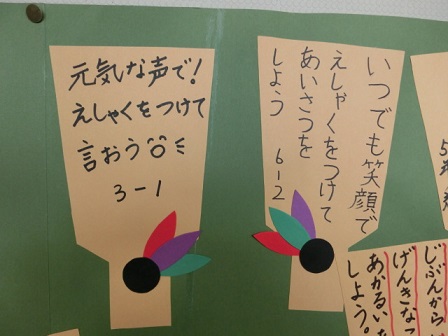 元気な声で!
えしゃくをつけて
言おう
3-1
いつでも笑顔で
えしゃくをつけて
あいさつを
しよう 6-2
じぶんから
げんきなこ
あかるい
しよう